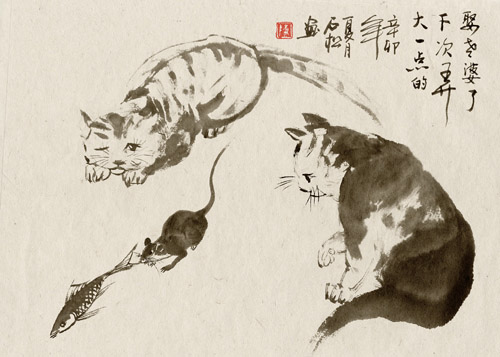 娶老婆了
下次弄
大一点的
辛卯
年
夏月
石松
画